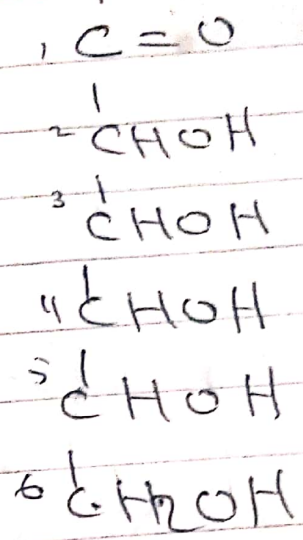 1 C = O
2 CHOH
3 CHOH
4 CHOH
5 CHOH
6 CH2OH